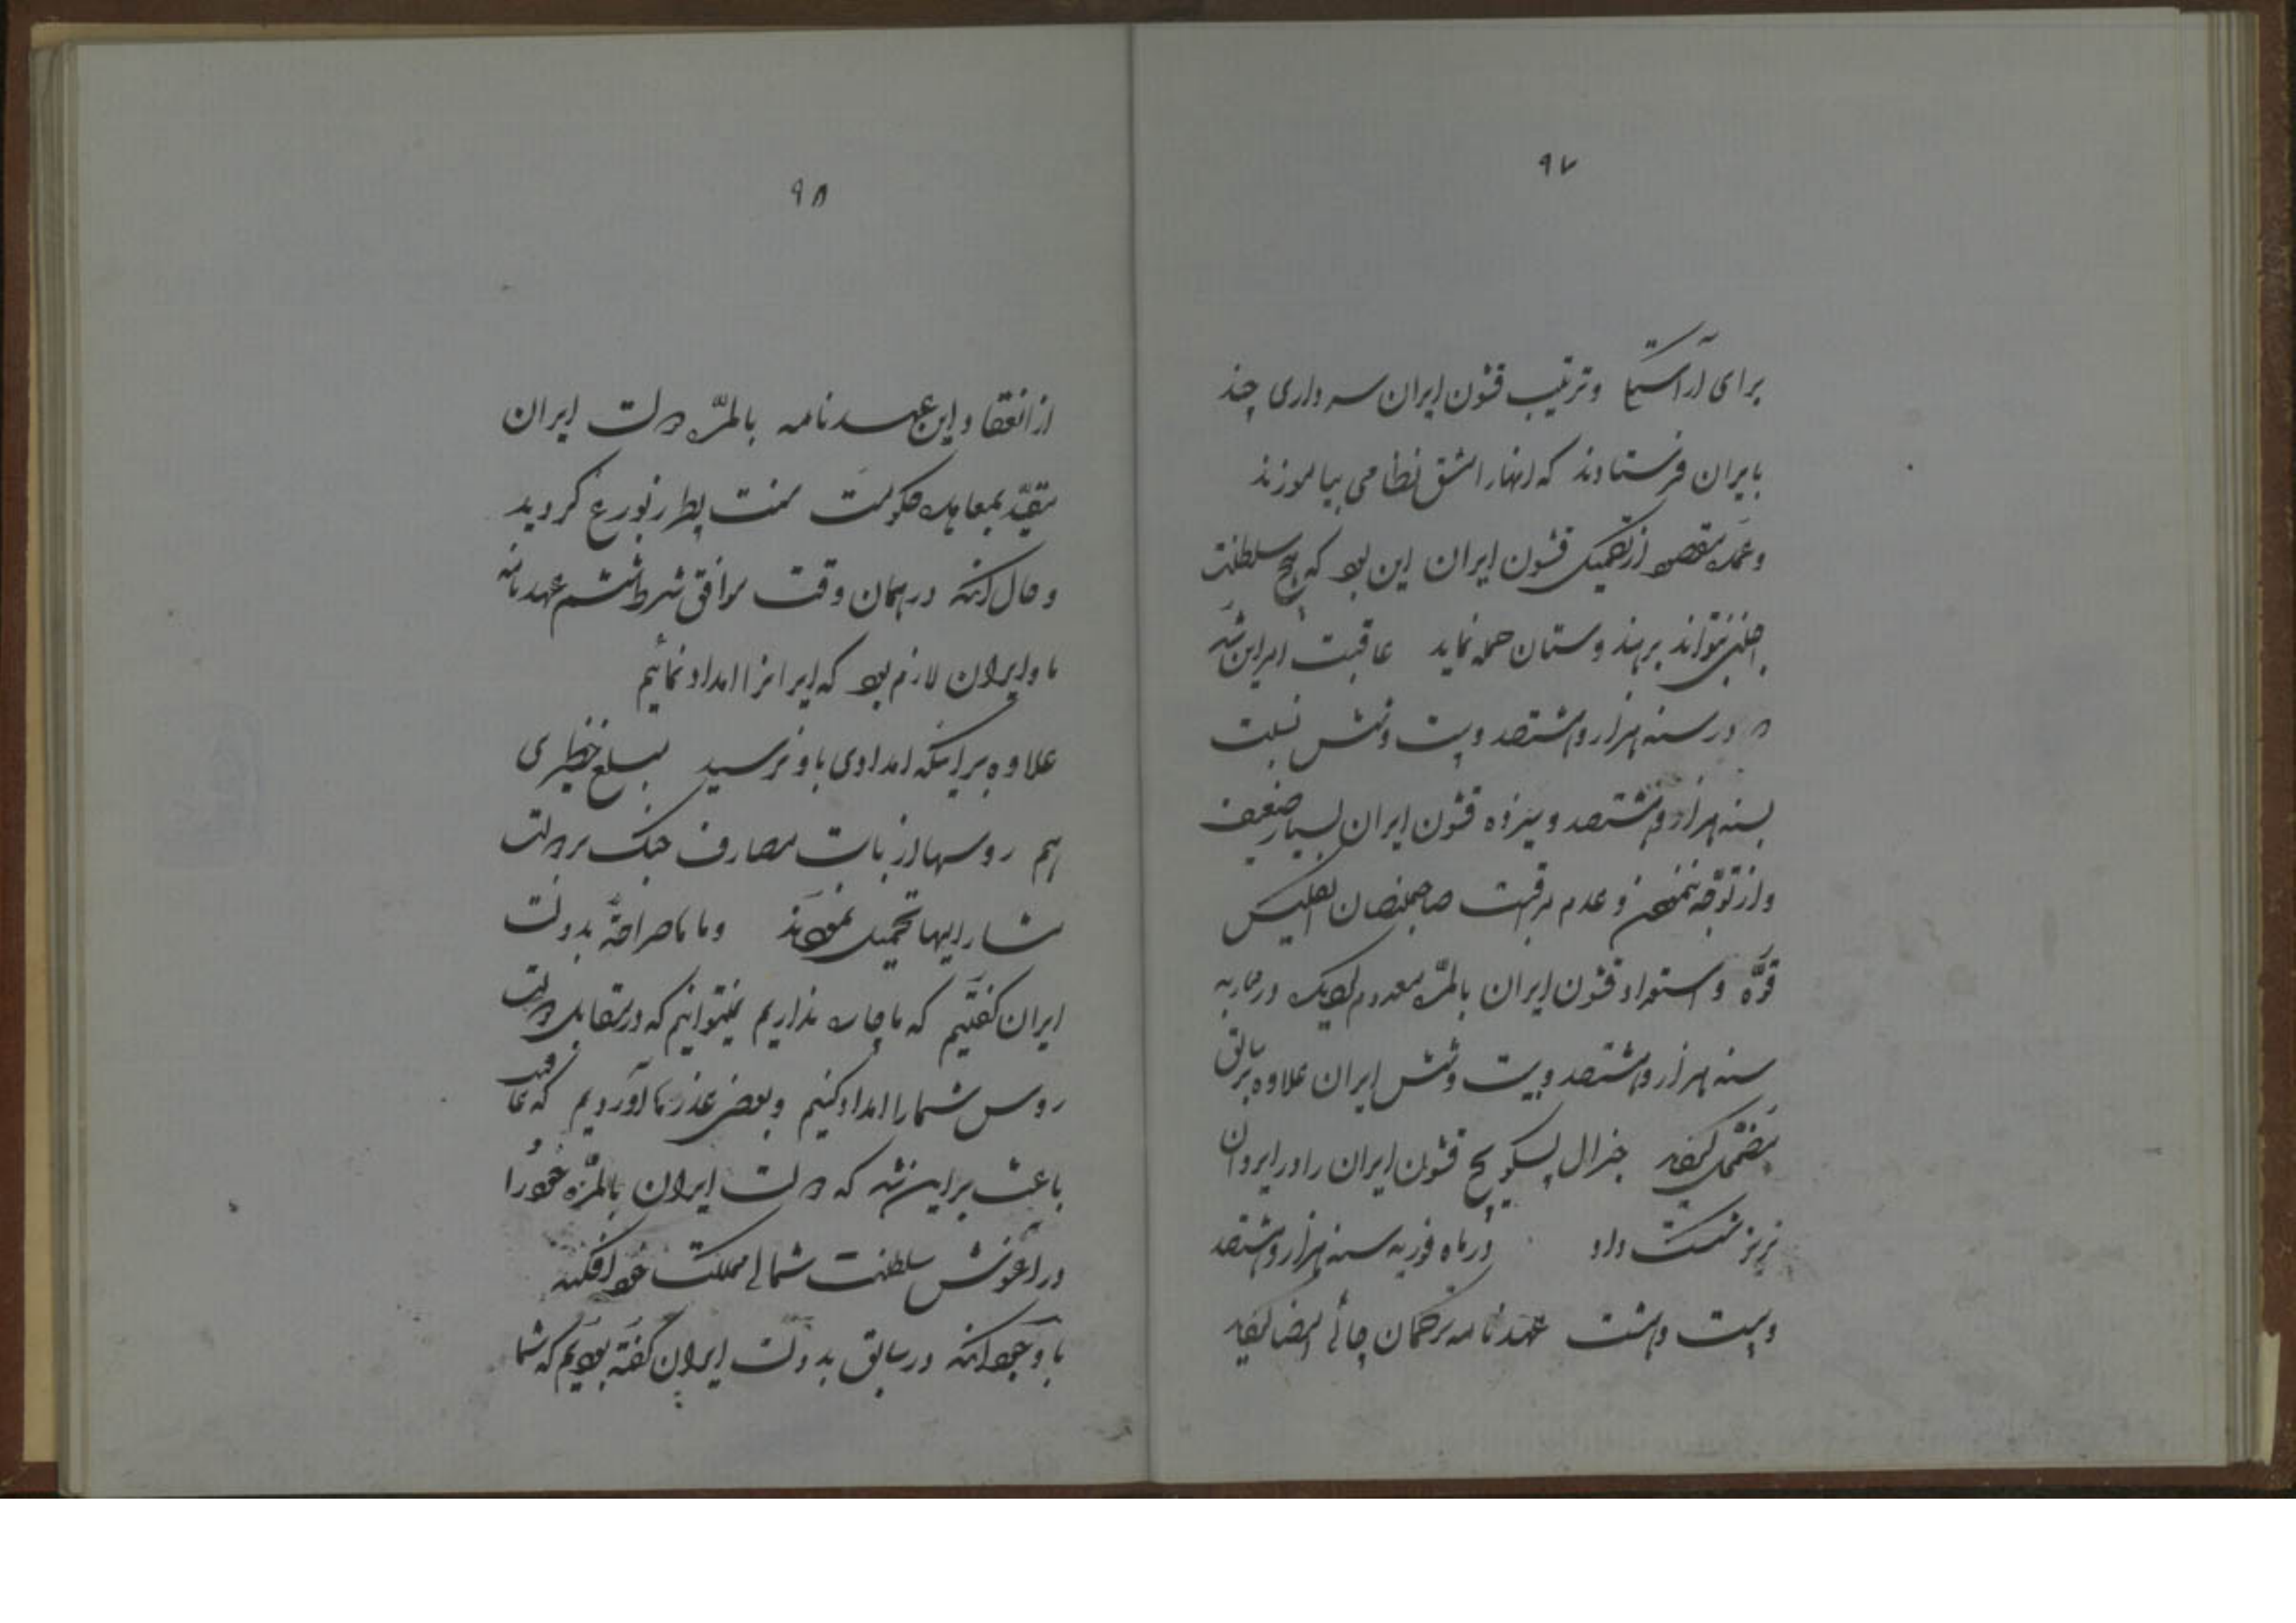 ۹۷
برای آراستگی و ترتیب قشون ایران سرداری چند
بایران فرستادند که آنها را مشق نظامی بیاموزند
و عمده مقصود از تکمیل قشون ایران این بود که هیچ سلطنت
اجنبی نتواند بر هندوستان حمله نماید عاقبت امر این شد
که در سنه هزار و هشتصد و بیست و شش نسبت
بسنه هزار و هشتصد و سیزده قشون ایران بسیار ضعیف
و از توجه ننمودن و عدم مراقبت صاحبمنصبان انگلیس
قوّه و استعداد قشون ایران بالمرّه معدوم گردید در محاربه
سنه هزار و هشتصد و بیست و شش ایران علاوه بر سابق
مضمحل گردید جنرال پسکویچ قشون ایران را در ایروان
تبریز شکست داد در ماه فوریه سنه هزار و هشتصد
و بیست و هشت عهدنامه ترکمان چائی امضا گردید
۹۸
از انعقاد این عهدنامه بالمرّه دولت ایران
مقیّد بمعاهده حکومت سنت پطرزبورغ گردید
و حال آنکه در همان وقت موافق شرط هشتم عهدنامه
ما و ایران لازم بود که ایران را امداد نمائیم
علاوه بر اینکه امدادی باو نرسید مبلغ خطیری
هم روسها از بابت مصارف جنگ بر دولت
مشارالیها تحمیل نمودند و ما صراحةً بدولت
ایران گفتیم که ما چاره نداریم نمیتوانیم که در مقابل دولت
روس شما را امداد کنیم و بعضی عذرها آوردیم که عاقبت
باعث بر این شد که دولت ایران بالمرّه خود را
در آغوش سلطنت شمالی مملکت خود افکند
با وجود آنکه در سابق بدولت ایران گفته بودیم که شما